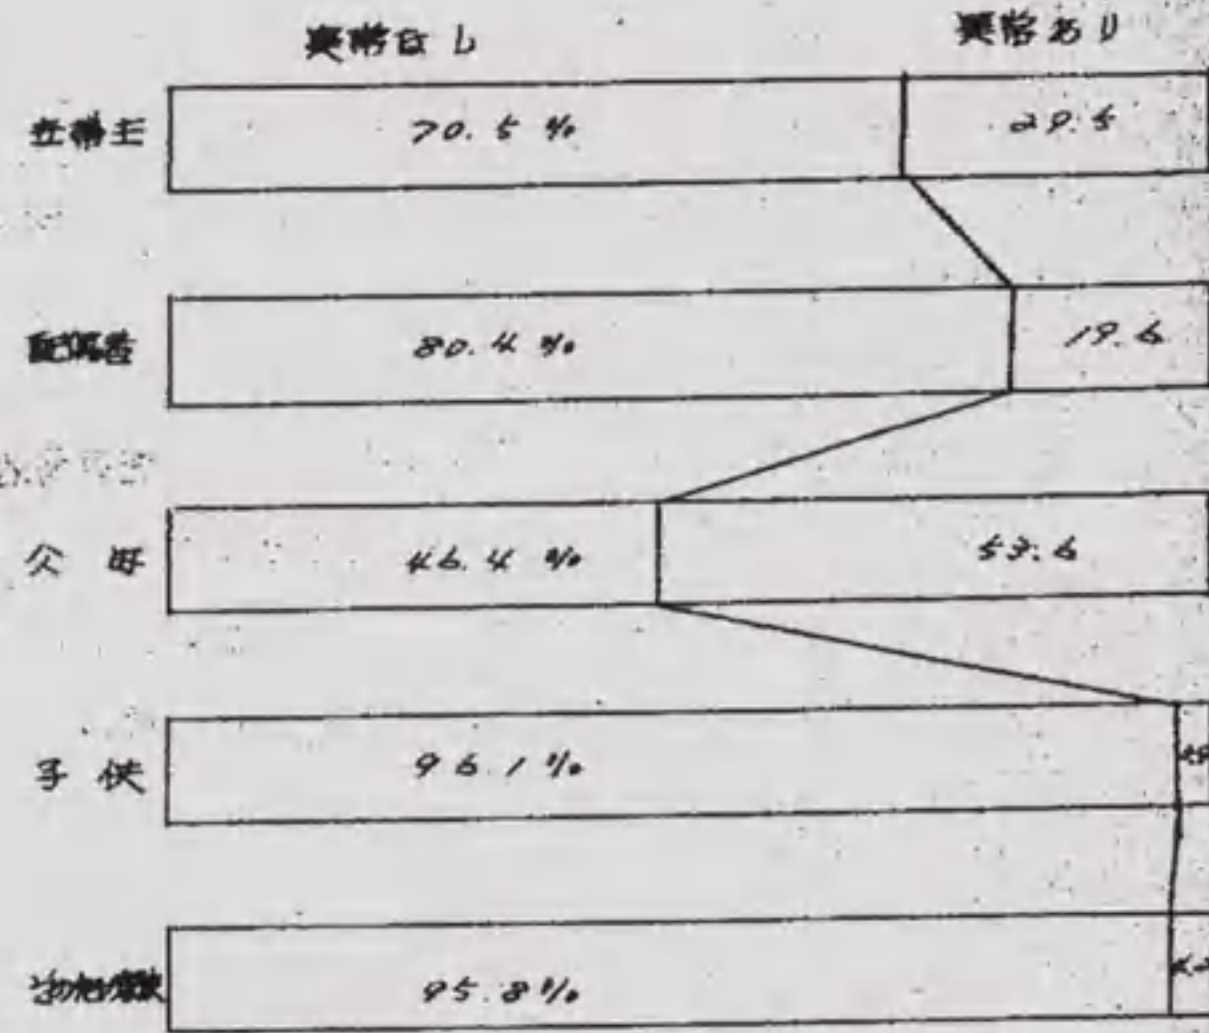 異常なし 異常あり
世帯主 70.5 % 29.5
配偶者 80.4 % 19.6
父 母 46.4 % 53.6
子 供 96.1 %
その他の家族 95.8 %